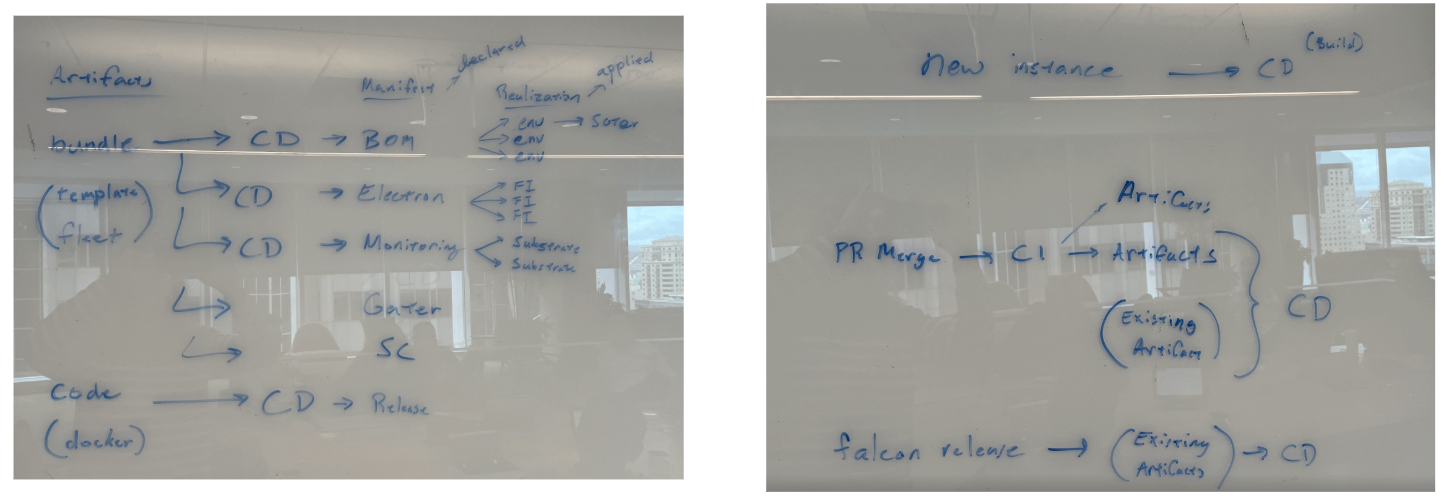 Artifacts
Manifest → declared
Realization → applied
bundle → CD → BOM
env →
env
env
(template fleet)
CD → Electron
FI
FI
FI
CD → Monitoring
Substrate
Substrate
Gater
SC
Code → CD → Release
(docker)
New instance → CD (Build)
Artifacts
PR Merge → CI → Artifacts
(Existing Artifact)
CD
falcon release → (Existing Artifacts) → CD